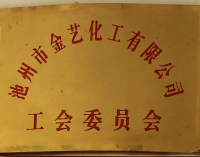 池州市金艺化工有限公司
工会委员会